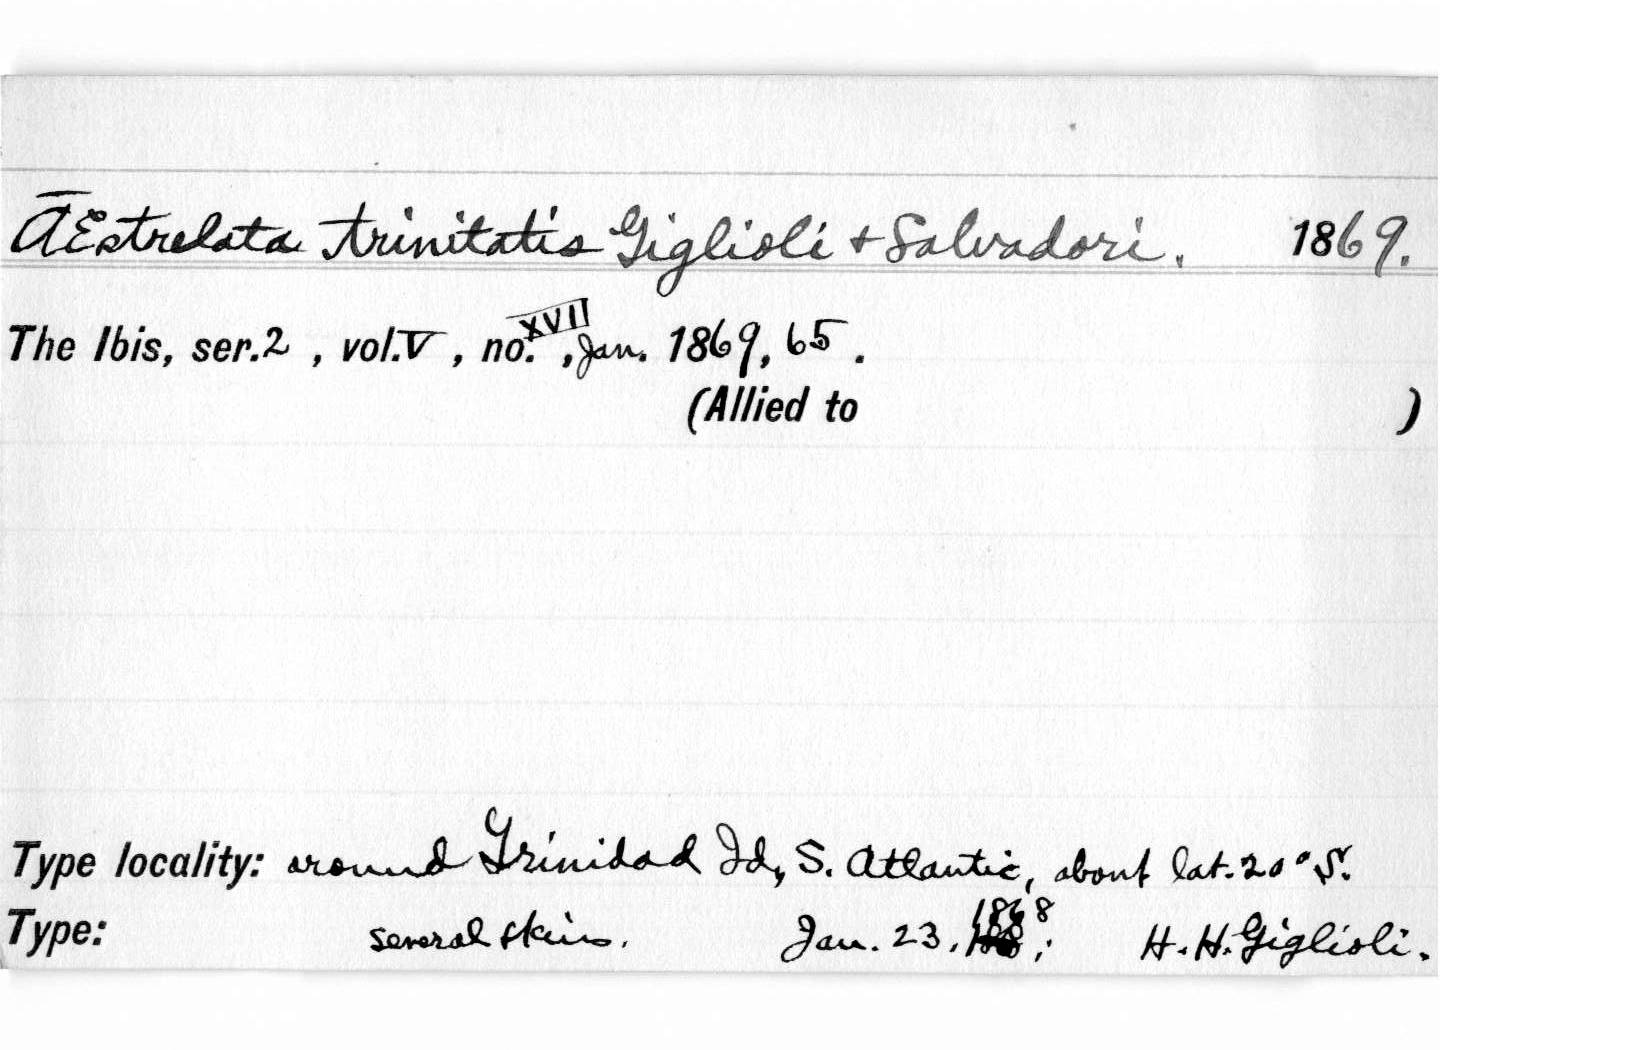 AEstrelata trinitatis Giglioli + Salvadori. 1869.
The Ibis, ser.2 , vol.V , no. XVII , Jan. 1869, 65 .
(Allied to )
Type locality: around Trinidad Id, S. Atlantic, about lat. 20° S.
Type: several skins. Jan. 23, 1868; H. H. Giglioli.